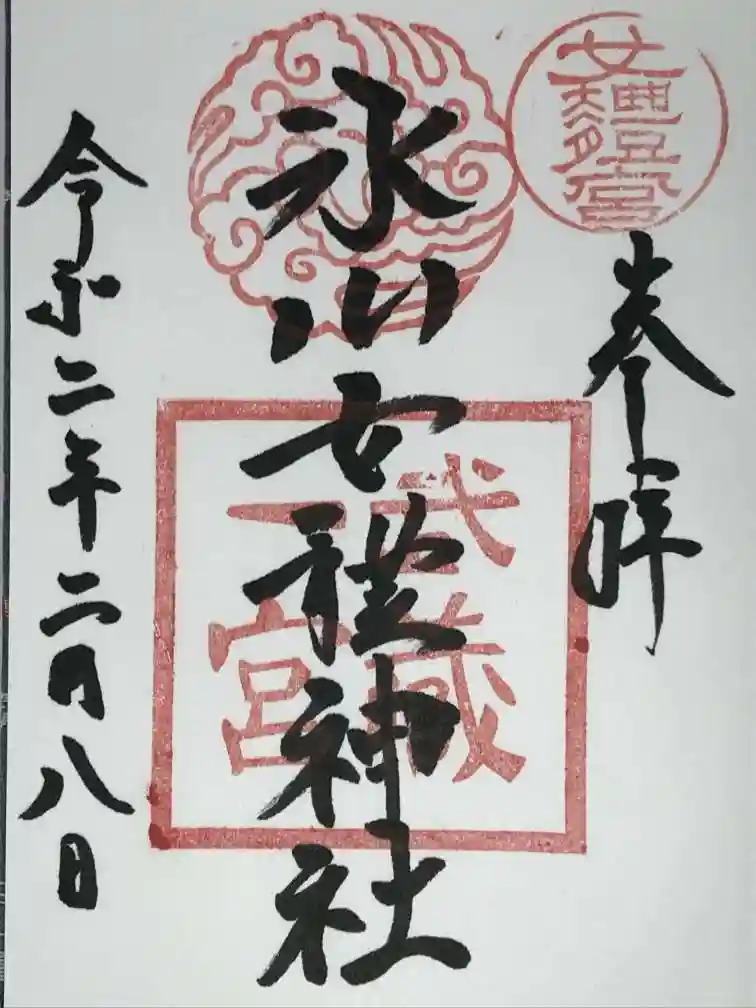 女體宮
奉拝
氷川女體神社
武蔵
一宮
令和二年二月八日